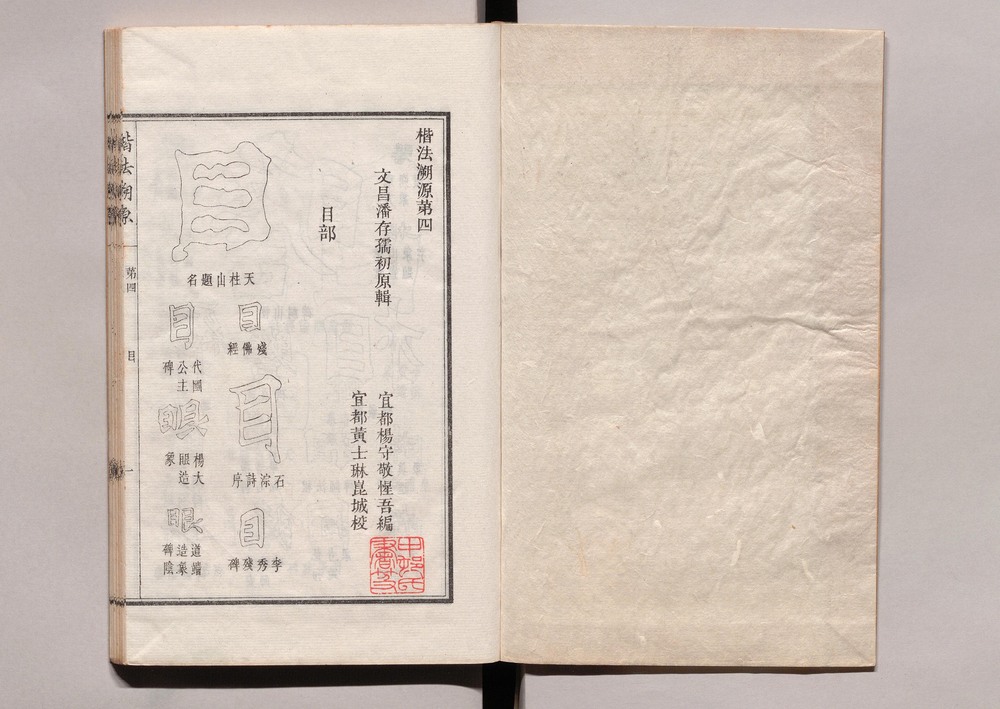 楷法溯源第四
文昌潘存孺初原輯
宜都楊守敬惺吾編
宜都黃士琳崑城校
目部
目
天柱山題名
目
殘佛經
目
石淙詩序
目
李秀殘碑
目
代國公主碑
眼
楊大眼造象
眼
道造象碑陰
楷法溯原
第四
目
一